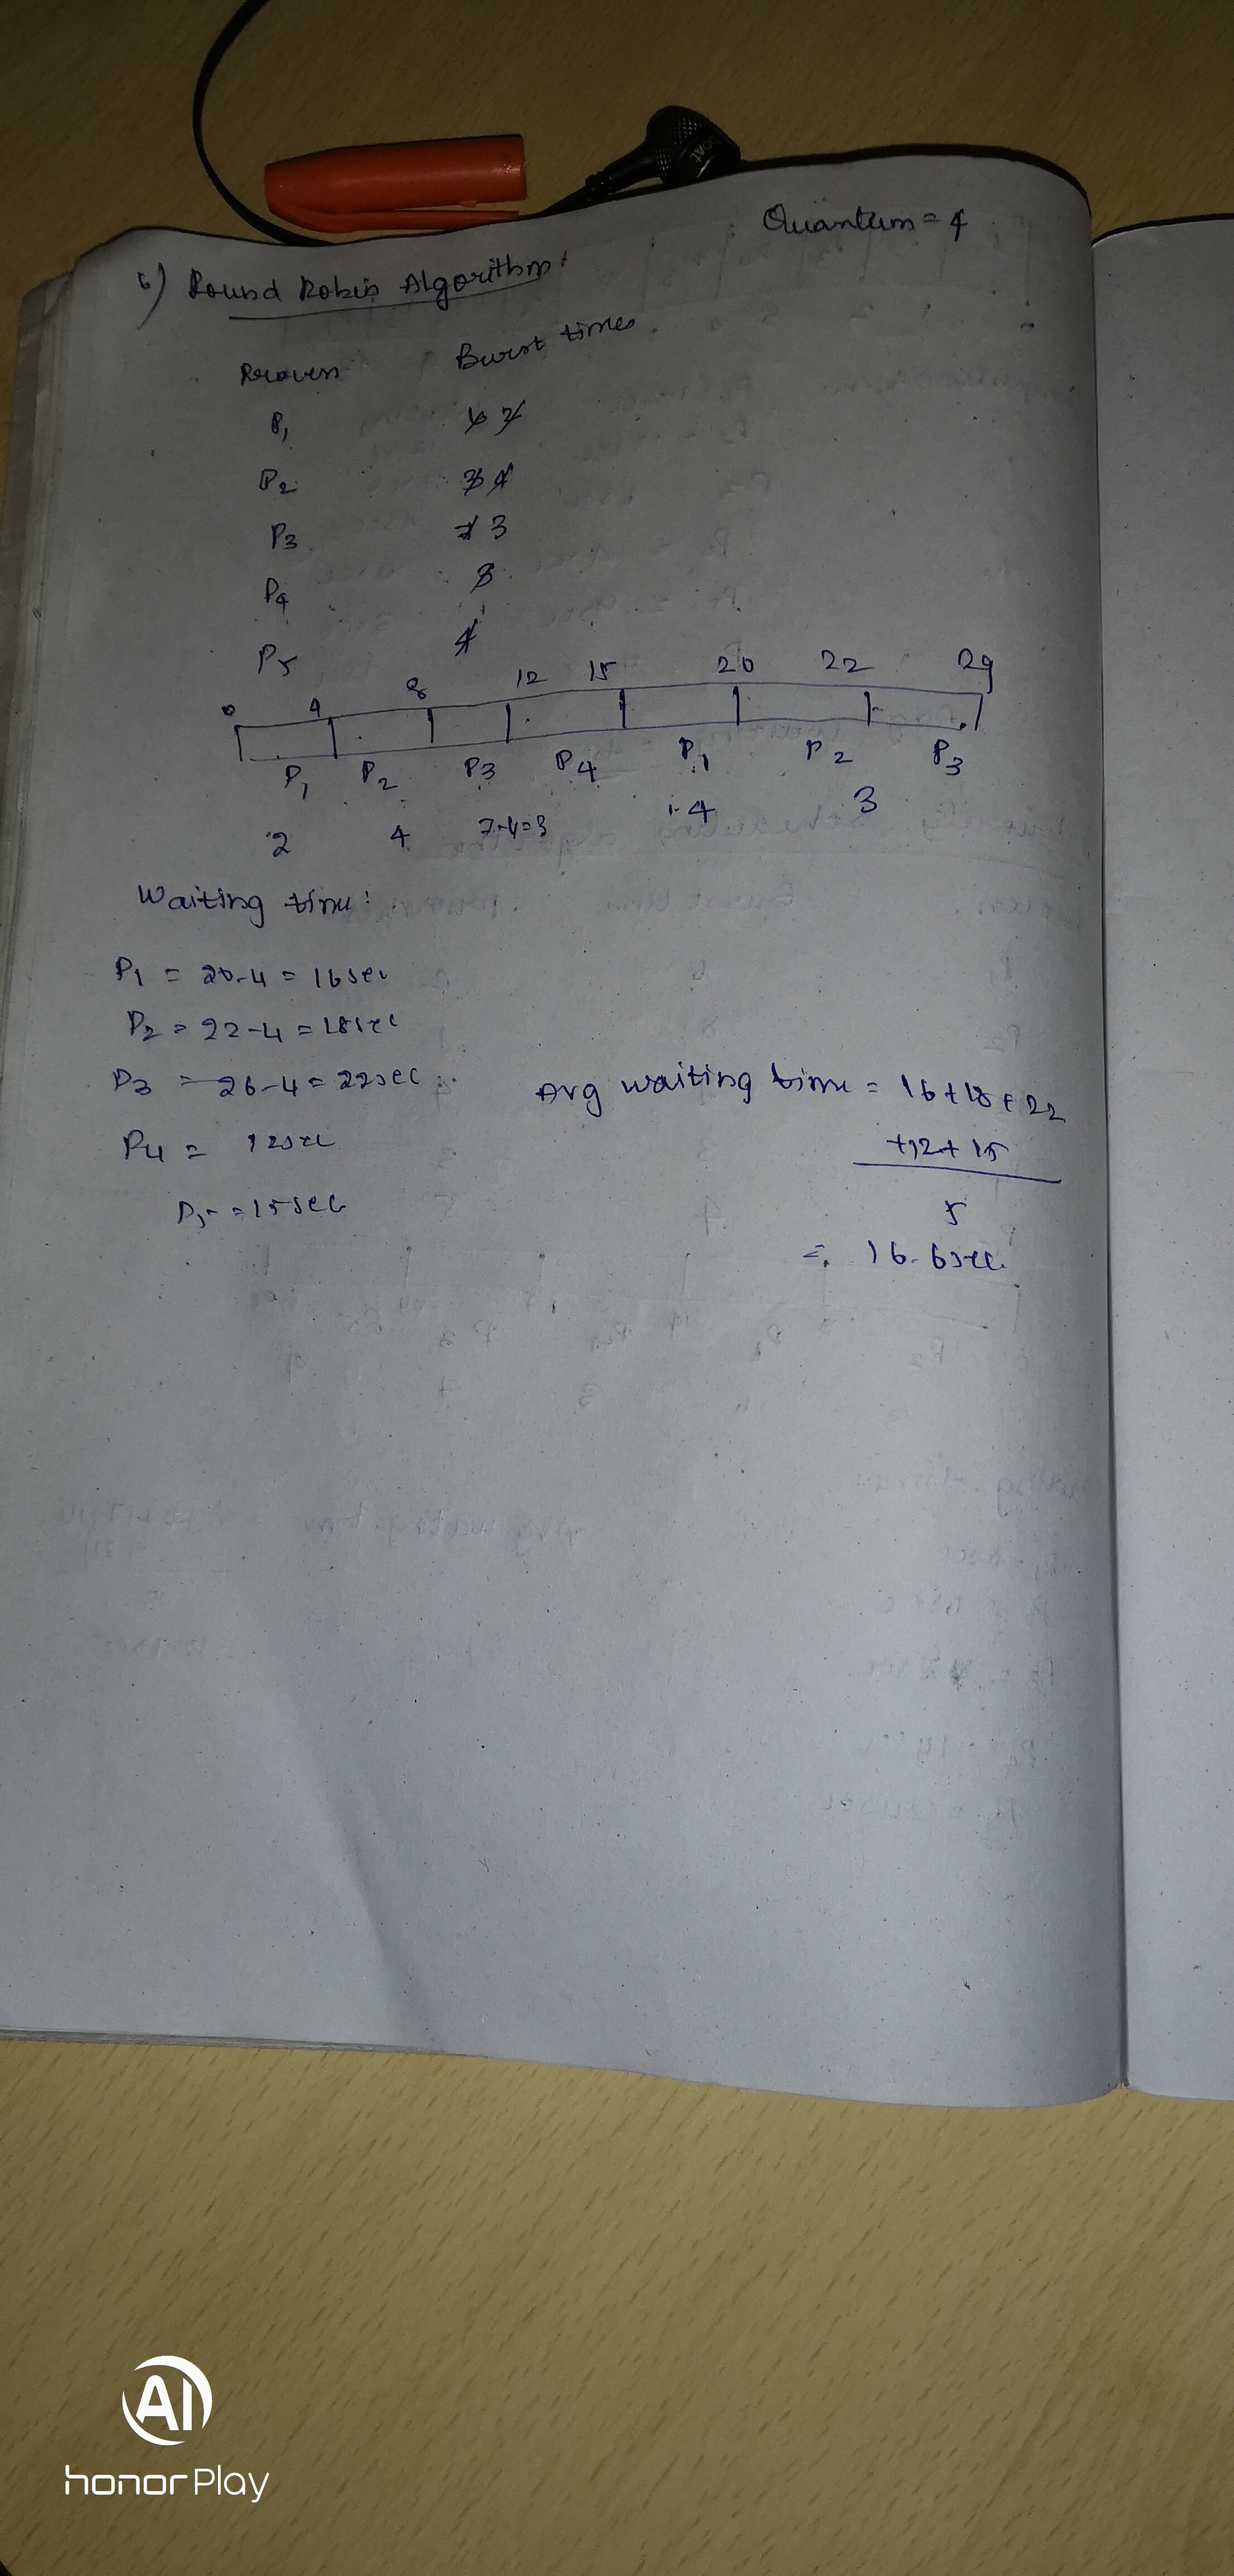 boAt
Quantum = 4
6) Round Robin Algorithm:
Burst times
P1 6 2
P2 8 4
P3 7 3
P4 3
P5 4
0 4 8 12 15 20 22 29
P1 P2 P3 P4 P1 P2 P3
2 4 7-4=3 4 3
Waiting time:
P1 = 20-4 = 16sec
P2 = 22-4 = 18sec
P3 = 26-4 = 22sec
P4 = 12sec
P5 = 15sec
Avg waiting time = 16+18+22
+12+15
5
= 16.6sec
AI
honor Play